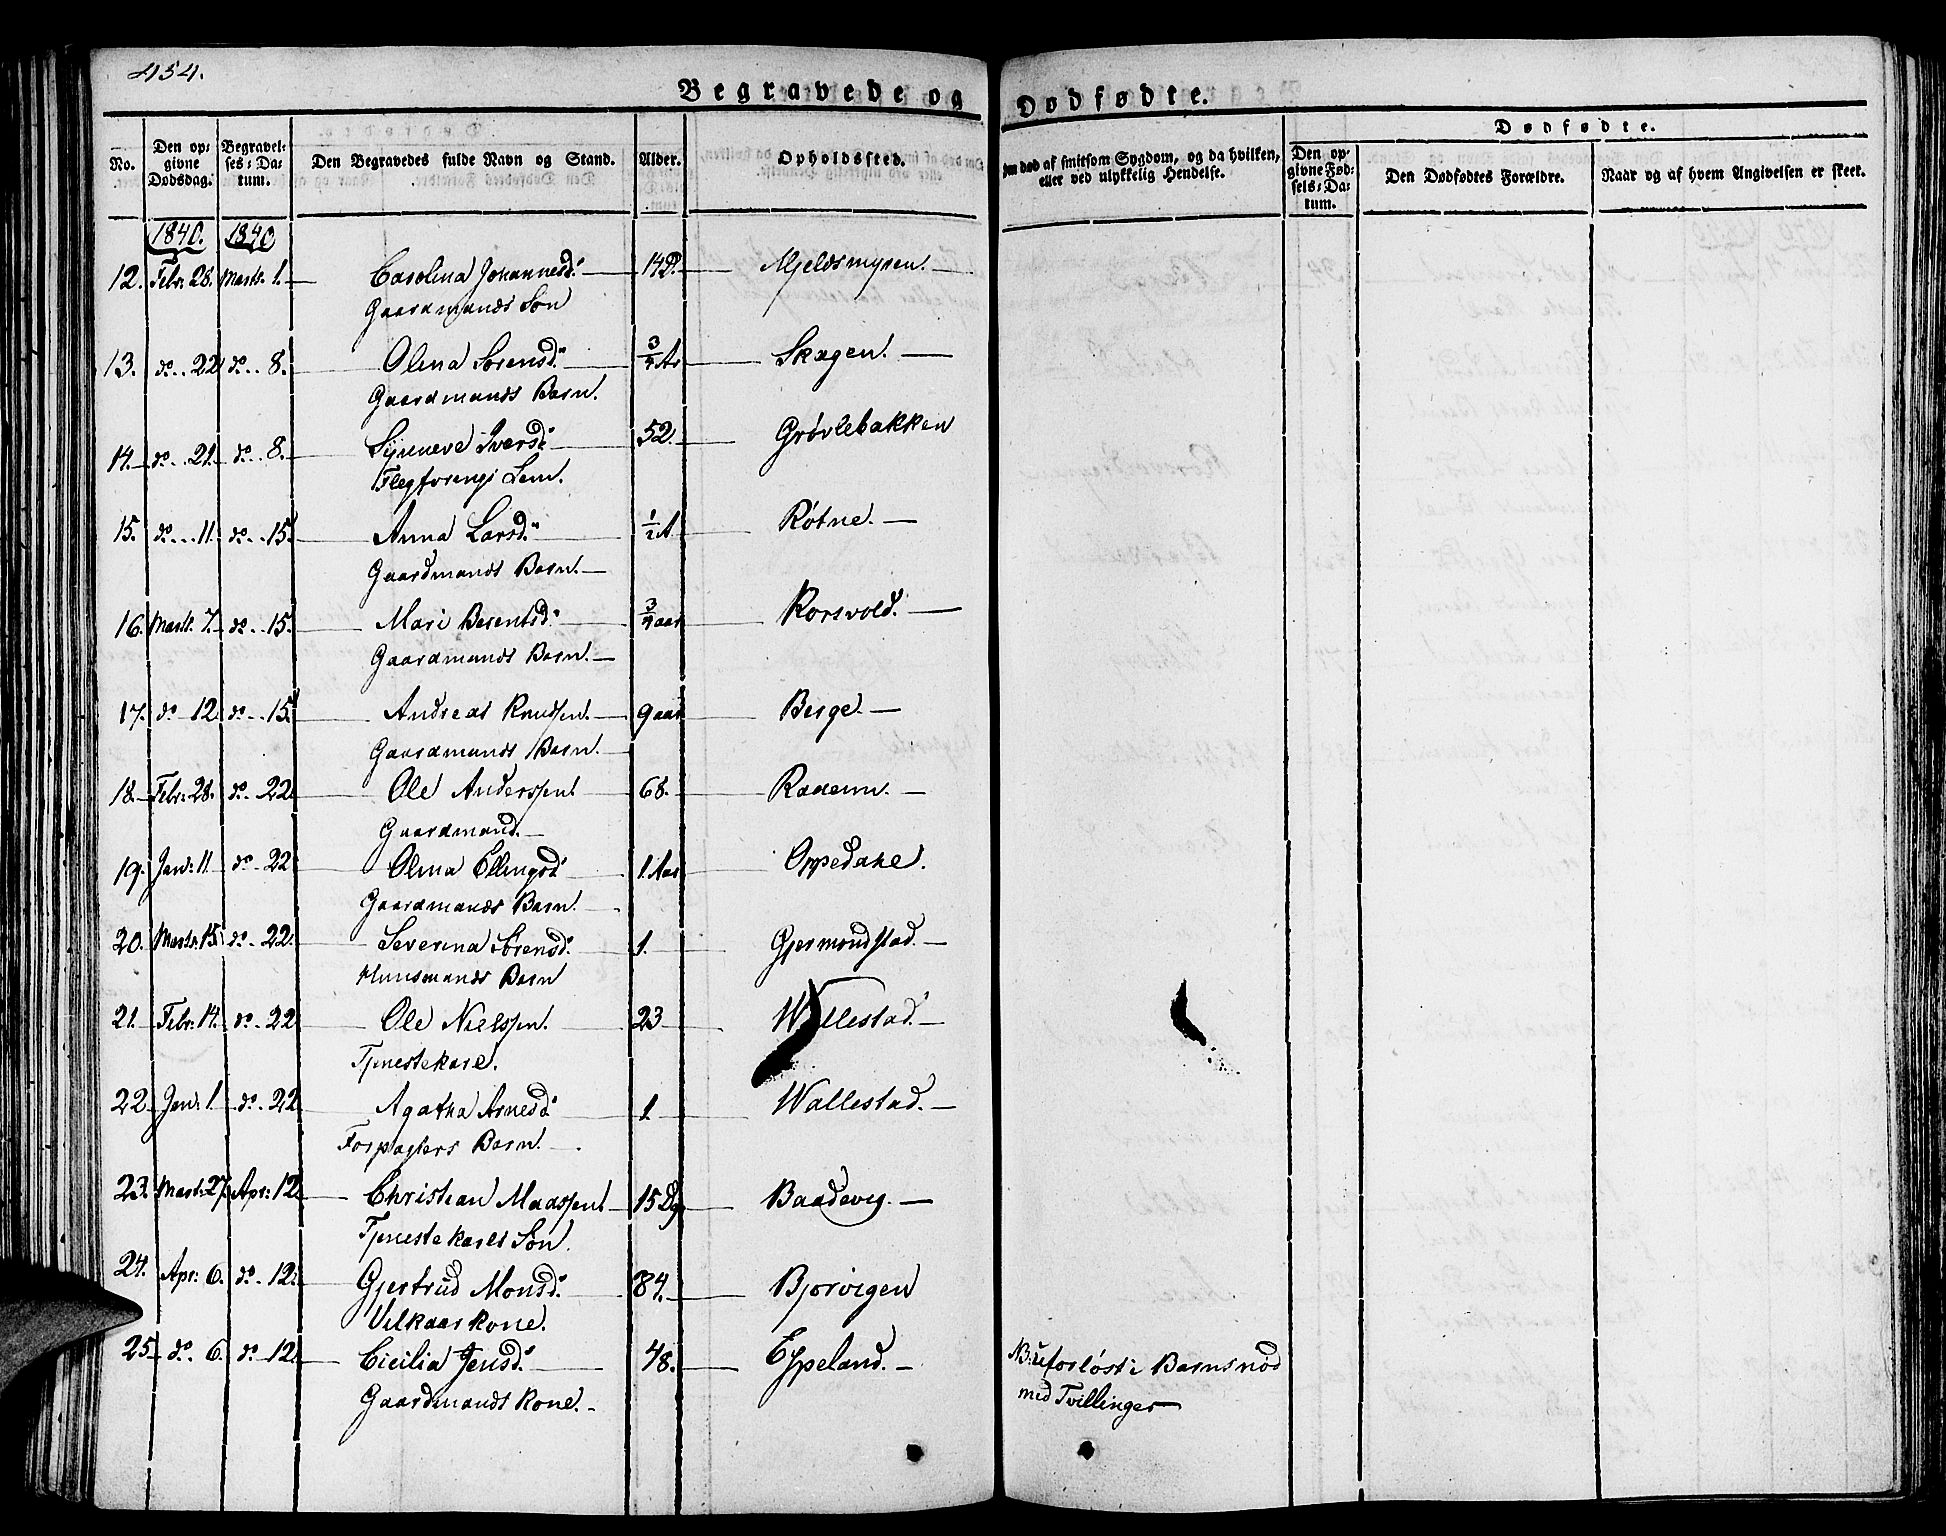 454.
Begravede og Dødfødte.
Dødfødte.
No. Den opgivne Dødsdag. Begravelses-Datum. Den Begravedes fulde Navn og Stand. Alder. Opholdssted. Om død af smitsom Sygdom, og da hvilken, eller ved ulykkelig Hendelse. Den opgivne Fødsels-Datum. Den Dødfødtes Forældre. Naar og af hvem Angivelsen er skeet.
1840. 1840
12. Febr: 28. Marts 1. Carolina Johannesd: 14 D. Mjeldsmyren.
Gaardmands Søn
13. do 22 do 8. Olina Sørensd: 3/4 Ar Skagen.
Gaardmands Barn.
14. do 21. do 8. Syneve Iversd: 52. Grøvlebakken
Lem.
15. do 11. do 15. Anna Larsd: 1/2 A Røtne.
Gaardmands Barn.
16. Marts 7. do 15. Mari Berentsd: 3/4 aar Korsvold.
Gaardmands Barn.
17. do 12. do 15. Andreas Knudssen. 9 aar Berge.
Gaardmands Barn.
18. Febr: 28. do 22. Ole Anderssen 68.
Gaardmand.
19. Jan: 11 do 22 Olina Ellingsd: 1 Aar Oppedahl.
Gaardmands Barn.
20. Marts 15. do 22. Severina Sørensd: 1. Gjermondstad.
Huusmands Barn
21. Febr: 14. do 22 Ole Nielssen. 23 Wallestad.
Tjenestekarl.
22. Jan: 1. do 22 Agatha Arnesd: 1. Wallestad.
Forpagters Barn.
23. Marts 27. Apr: 12. Christian Madssen 15 Dg Baadevig.
Tjenestekarls Søn.
24. Apr: 6. do 12. Gjertrud Monsd: 84. Bjorvigen
Vilkaarkone.
25. do 6. do 12. Cicilia Jensd: 48. Eppeland. NB: uforløst i Barnsnød
Gaardmands Kone. med Tvillinger